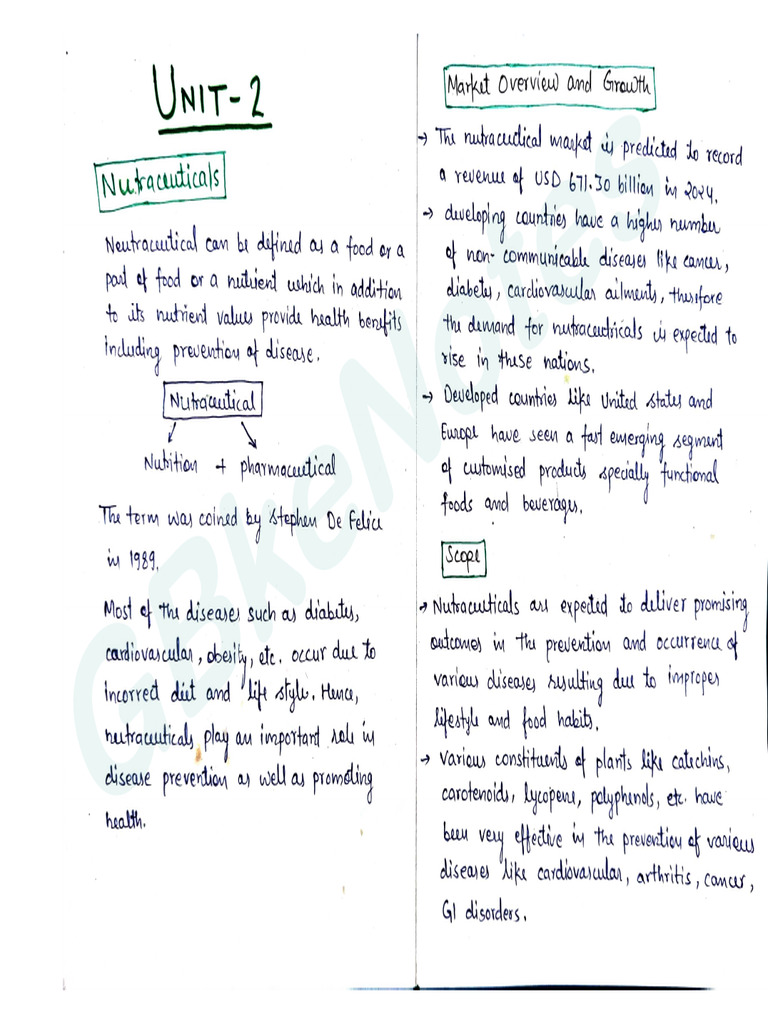 UNIT-2
Nutraceuticals
Neutraceutical can be defined as a food or a
part of food or a nutrient which in addition
to its nutrient values provide health benefits
including prevention of disease.
Nutraceutical
Nutrition + pharmaceutical
The term was coined by Stephen De Felice
in 1989.
Most of the diseases such as diabetes,
cardiovascular, obesity, etc. occur due to
incorrect diet and life style. Hence,
neutraceuticals play an important role in
disease prevention as well as promoting
health.
Market Overview and Growth
→ The nutraceutical market is predicted to record
a revenue of USD 671.30 billion in 2024.
→ developing countries have a higher number
of non-communicable diseases like cancer,
diabetes, cardiovascular ailments, therefore
the demand for nutraceutricals is expected to
rise in these nations.
→ Developed countries like United States and
Europe have seen a fast emerging segment
of customised products specially functional
foods and beverages.
Scope
→ Nutraceuticals are expected to deliver promising
outcomes in the prevention and occurrence of
various diseases resulting due to improper
lifestyle and food habits.
→ Various constituents of plants like catechins,
carotenoids, lycopene, polyphenols, etc. have
been very effective in the prevention of various
diseases like cardiovascular, arthritis, cancer,
GI disorders.
GBkeNotes